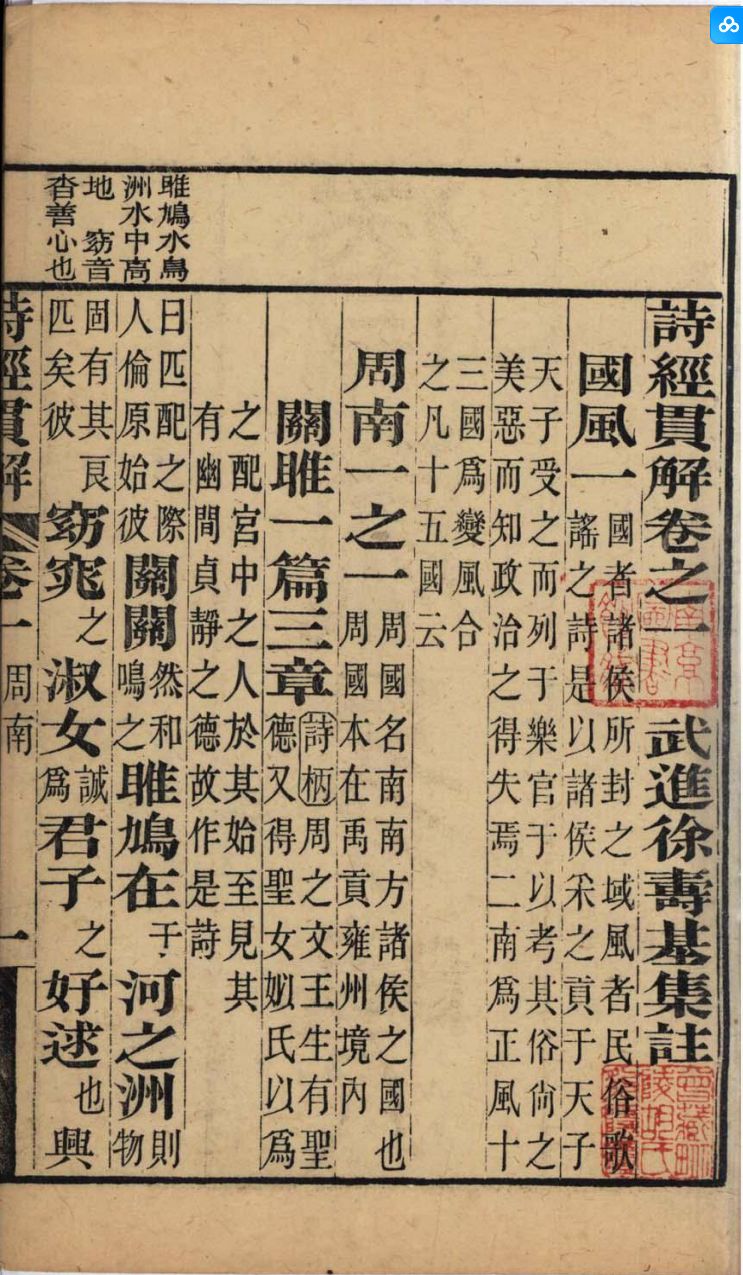 詩經貫解卷之一　武進徐壽基集註
國風一
國者諸侯所封之域風者民俗歌
謠之詩是以諸侯采之貢于天子
天子受之而列于樂官于以考其俗尚之
美惡而知政治之得失焉二南爲正風十
三國爲變風合
之凡十五國云
周南一之一
周國名南南方諸侯之國也
周國本在禹貢雍州境內
關雎一篇三章
詩柄周之文王生有聖
德又得聖女姒氏以爲
之配宮中之人於其始至見其
有幽間貞靜之德故作是詩
雎鳩水鳥
洲水中高
地　窈音
杳善心也
曰匹配之際
人倫原始彼
關關
然和
鳴之
雎鳩在于河之洲
則
物
固有其良
匹矣彼
窈窕之淑女
誠
爲
君子之好逑也興
詩經貫解　卷一　周南　一